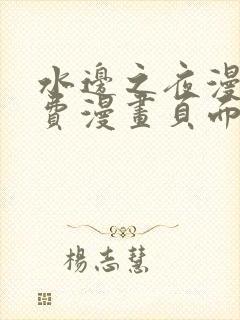 水邊之夜漫
費漫畫頁面
楊志慧